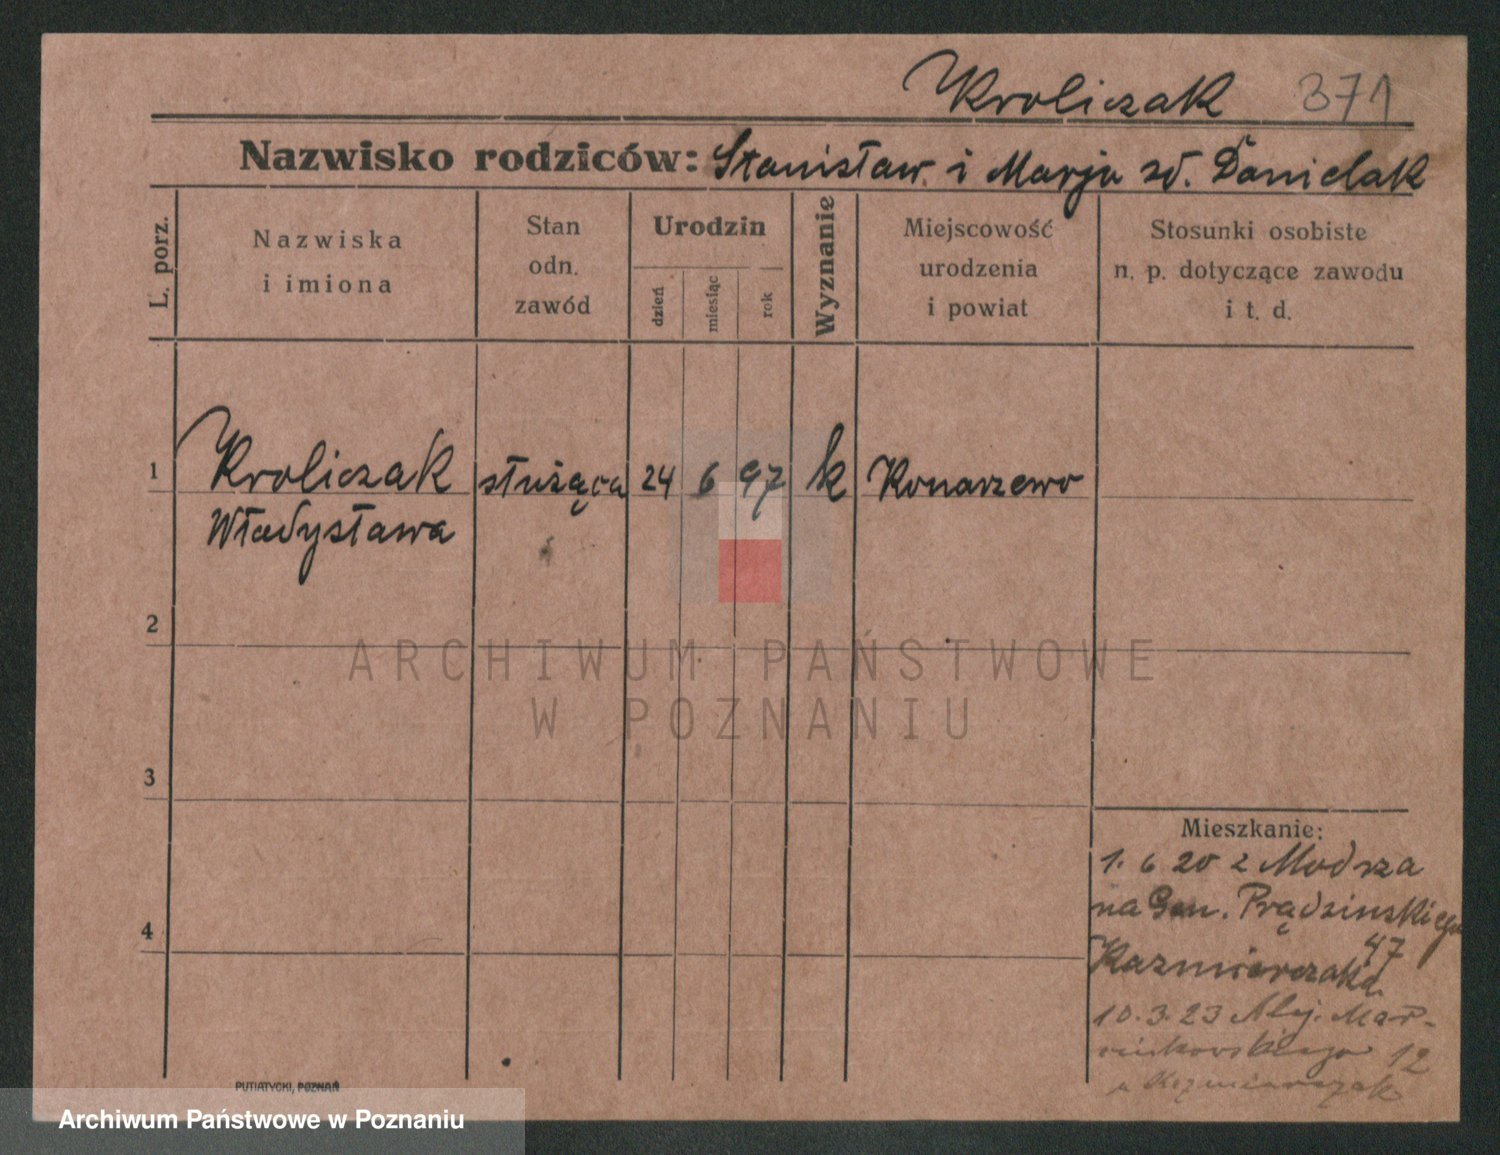 Kroliczak 371
Nazwisko rodziców: Stanisław i Marja zd. Danielak
L. porz.
Nazwiska
i imiona
Stan
odn.
zawód
Urodzin
dzień
miesiąc
rok
Wyznanie
Miejscowość
urodzenia
i powiat
Stosunki osobiste
n. p. dotyczące zawodu
i t. d.
1 Kroliczak służąca 24 6 97 k Konarzewo
Władysława
2
ARCHIWUM PAŃSTWOWE
W POZNANIU
3
Mieszkanie:
1. 6 20 z Modrza
na Gen. Prądzinskiego
47
4
Kazmierczaka
10.3.23 Alej. Mar-
cinkowskiego 12
u Kazmierczak
PUTIATYCKI, POZNAŃ
Archiwum Państwowe w Poznaniu